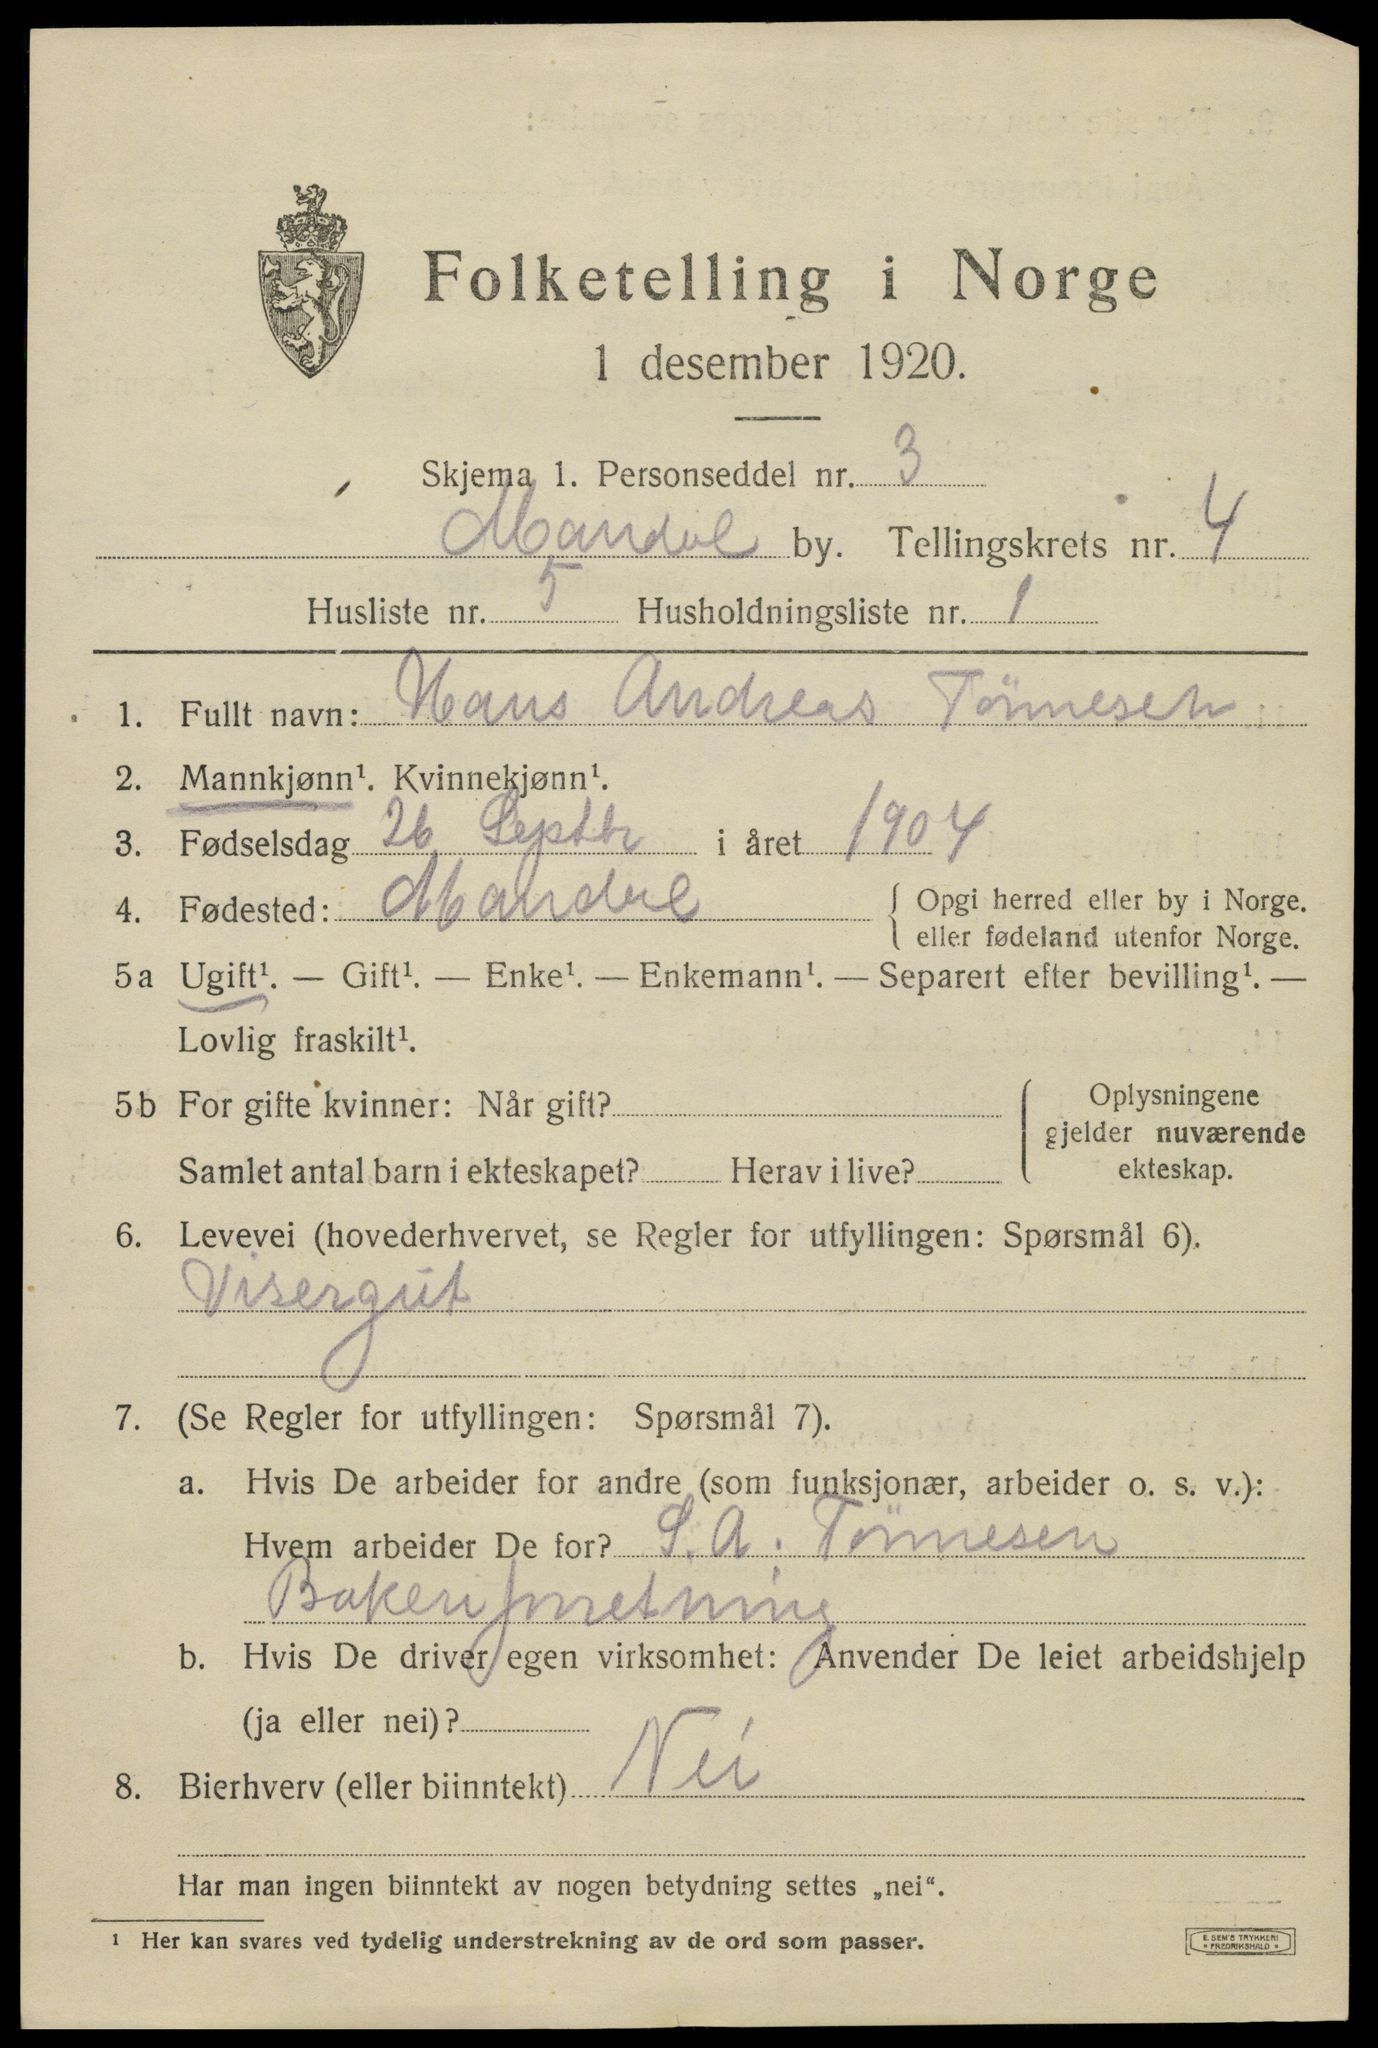 Folketelling i Norge
1 desember 1920.
Skjema 1. Personseddel nr. 3
Mandal by. Tellingskrets nr. 4
Husliste nr. 5 Husholdningsliste nr. 1
1. Fullt navn: Hans Andreas Tönnesen
2. Mannkjønn¹. Kvinnekjønn¹.
3. Fødselsdag 26 Septbr i året 1904
4. Fødested: Mandal { Opgi herred eller by i Norge.
eller fødeland utenfor Norge.
5a Ugift¹. — Gift¹. — Enke¹. — Enkemann¹. — Separert efter bevilling¹. —
Lovlig fraskilt¹.
5b For gifte kvinner: Når gift?
Samlet antal barn i ekteskapet? Herav i live?
Oplysningene
gjelder nuværende
ekteskap.
6. Levevei (hovederhvervet, se Regler for utfyllingen: Spørsmål 6).
Visergut
7. (Se Regler for utfyllingen: Spørsmål 7).
a. Hvis De arbeider for andre (som funksjonær, arbeider o. s. v.):
Hvem arbeider De for? S. A. Tönnesen
Bakeriforretning
b. Hvis De driver egen virksomhet: Anvender De leiet arbeidshjelp
(ja eller nei)?
8. Bierhverv (eller biinntekt) Nei
Har man ingen biinntekt av nogen betydning settes „nei“.
¹ Her kan svares ved tydelig understrekning av de ord som passer.
E. SEM'S TRYKKERI
* FREDRIKSHALD *